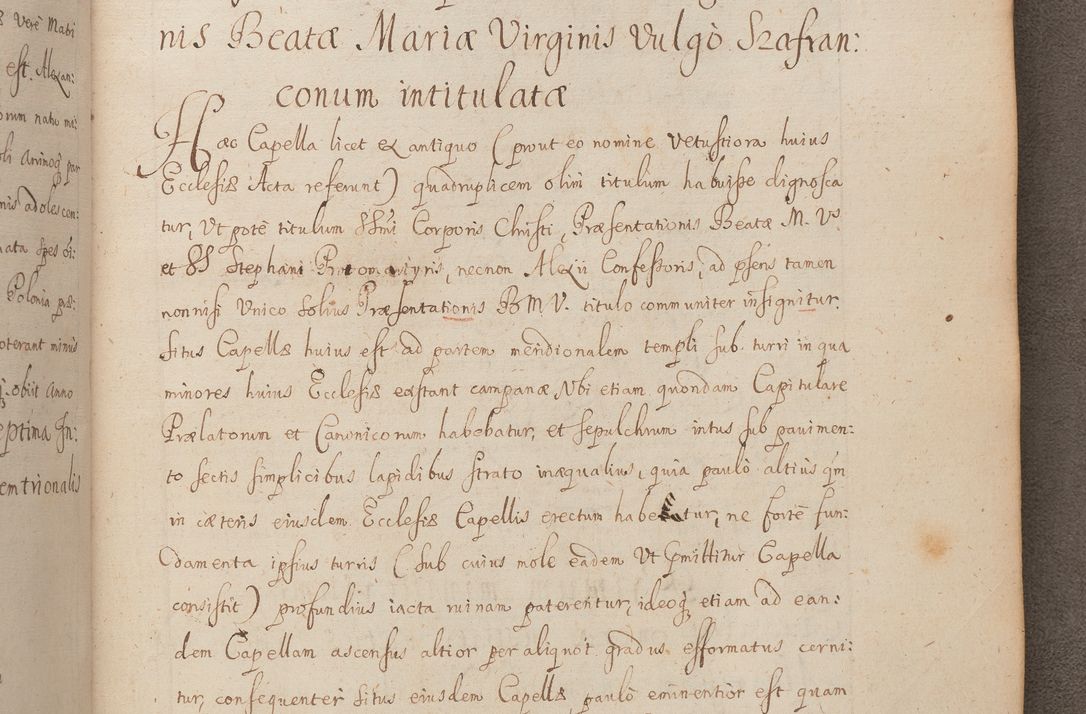 nis Beatæ Mariæ Virginis Vulgò Szafran:
conum intitulatæ
Hæc Capella licet ex antiquo (prout eo nomine vetustiora huius
Ecclesiæ Acta referunt) quadruplicem olim titulum habuisse dignosca
tur, Ut potè titulum SSmi Corporis Christi, Præsentationis Beatæ M. Vs
et SS Stephani Protomartyris, necnon Alexii Confessoris, ad psens tamen
nonnisi Unico solius Præsentationis B M. V. titulo communiter insignitur.
Situs Capellæ huius est ad partem meridionalem templi sub turri in qua
minores huius Ecclesiæ exstant campanæ Ubi etiam quondam Capitulare
Prælatorum et Canonicorum habebatur, et sepulchrum intus sub pavimen:
to sectis simplicibus lapidibus strato inæqualius, quia paulò altius qm
in cæteris eiusdem Ecclesiæ Capellis erectum habetur, ne fortè fun:
damenta ipsius turris (sub cuius mole eadem Ut pmittitur Capella
consistit) profundius iacta ruinam paterentur, ideoq etiam ad ean:
dem Capellam ascensus altior per aliquot gradus efformatus cerni:
tur, consequenter situs eiusdem Capellæ paulò eminentior est quam
s Verè Matri
est. Alexan:
orum natu mi:
oli Animoq par
nis adolescen:
nata spes oi:
Polonia
oterant minus
obijt Anno
eptima
emtrionalis